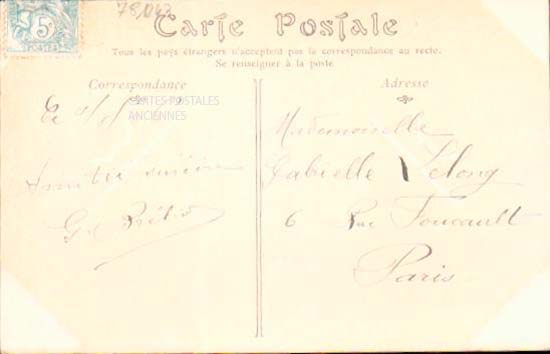 5c
POSTES
Carte Postale
Tous les pays étrangers n'acceptent pas la correspondance au recto.
Se renseigner à la poste
Correspondance
CARTES POSTALES
ANCIENNES
Le
Amitié sincère
G
Adresse
Mademoiselle
Gabrielle Lelong
6 Rue Foucault
Paris